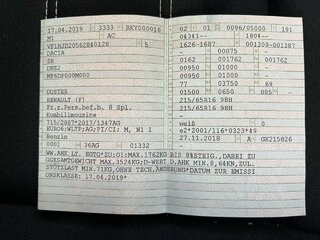 17.04.2019 3333 BKY000016
M1 AC
5
DACIA
SR
DHE2
MF6DF000M000
DUSTER
RENAULT (F)
Fz.z.Pers.bef.b. 8 Spl.
Kombilimousine
715/2007*2017/1347AG
EURO6;WLTP;AG;PI/CI; M, N1 I
Benzin
0001 36AG 01332
02 01 0096/05000 191
04341-- 1804--
1626-1687 001309-001387
00075
0162 001762 001762
00950 01000
00950 01000
77 03750 69
01500 0650 005
215/65R16 98H
215/65R16 98H
weiß 0
e2*2001/116*0323*49
27.11.2018 A GK215826
WW.AHK LT. EGTG*ZU:O1:MAX.1762KG BIS 8%STEIG.,DABEI ZU
GGESAMTGEWICHT MAX.3524KG;D-WERT D.AHK MIN.8,64KN,ZUL.
STÜTZLAST MIN.71KG,OHNE TECH.ÄNDERUNG*DATUM ZUR EMISSI
ONSKLASSE: 17.04.2019*